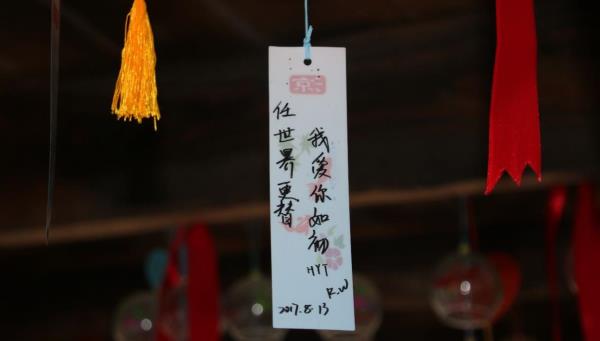 京
任世界更替
我愛你如初
HYT
R.W
2017.8.13